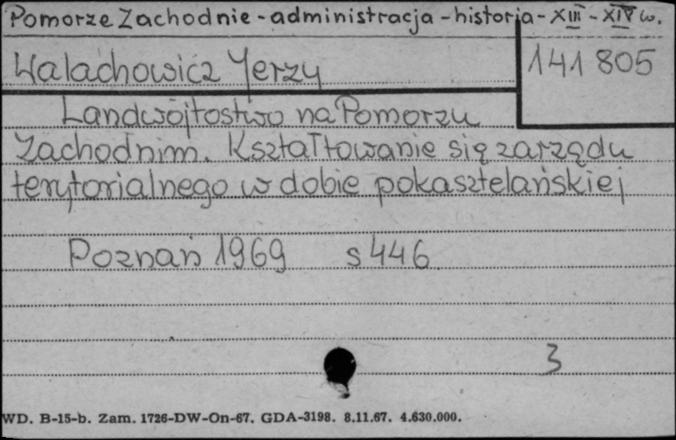 Pomorze Zachodnie - administracja - historja - XIII - XIV w.
Walachowicz Jerzy
141 805
Landwójtostwo na Pomorzu
Zachodnim. Kształtowanie się zarządu
terytorialnego w dobie pokasztelańskiej
Poznań 1969 s 446
3
WD. B-15-b. Zam. 1726-DW-On-67. GDA-3198. 8.11.67. 4.630.000.